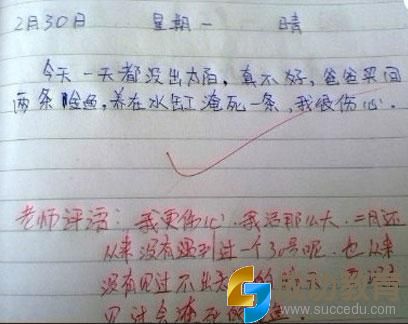 2月30日 星期一 晴
今天一天都没出太阳,真不好,爸爸买回
两条金鱼,养在水缸淹死一条,我很伤心.
老师评语:我更伤心.我活那么大,二月还
从来没有遇到过一个30号呢.也从来
没有见过不出
见过会淹死
www.succedu.com